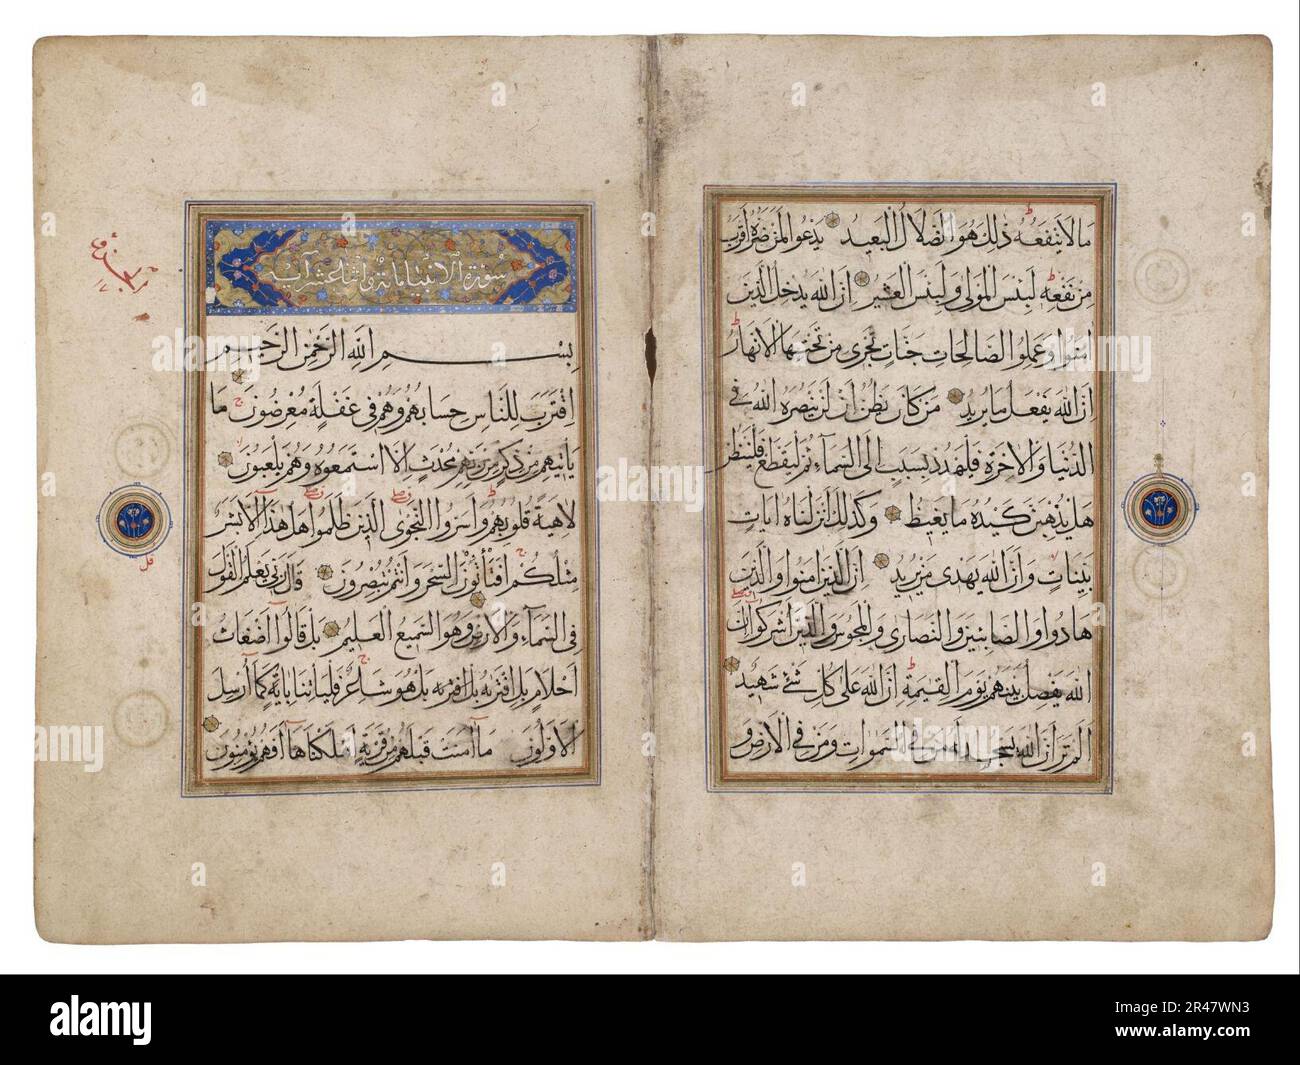 ما لا ينفعه ذلك هو الضلال البعيد يدعوا لمن ضره اقرب
من نفعه لبئس المولى ولبئس العشير ان الله يدخل الذين
امنوا وعملوا الصالحات جنات تجرى من تحتها الانهار
ان الله يفعل ما يريد من كان يظن ان لن ينصره الله فى
الدنيا والاخرة فليمدد بسبب الى السماء ثم ليقطع فلينظر
هل يذهبن كيده ما يغيظ وكذلك انزلناه ايات
بينات وان الله يهدى من يريد ان الذين امنوا والذين
هادوا والصابئين والنصارى والمجوس والذين اشركوا ان
الله يفصل بينهم يوم القيمة ان الله على كل شئ شهيد
الم تر ان الله يسجد له من فى السموات ومن فى الارض و
سورة الانبياء مائة واثنا عشر آية
بسم الله الرحمن الرحيم
اقترب للناس حسابهم وهم فى غفلة معرضون ما
ياتيهم من ذكر من ربهم محدث الا استمعوه وهم يلعبون
لاهية قلوبهم واسروا النجوى الذين ظلموا هل هذا الا بشر
مثلكم افتأتون السحر وانتم تبصرون قال ربى يعلم القول
فى السماء والارض وهو السميع العليم بل قالوا اضغاث
احلام بل افتريه بل هو شاعر فلياتنا باية كما ارسل
الاولون ما آمنت قبلهم من قرية اهلكناها افهم يؤمنون
alamy
Image ID: 2R47WN3
www.alamy.com